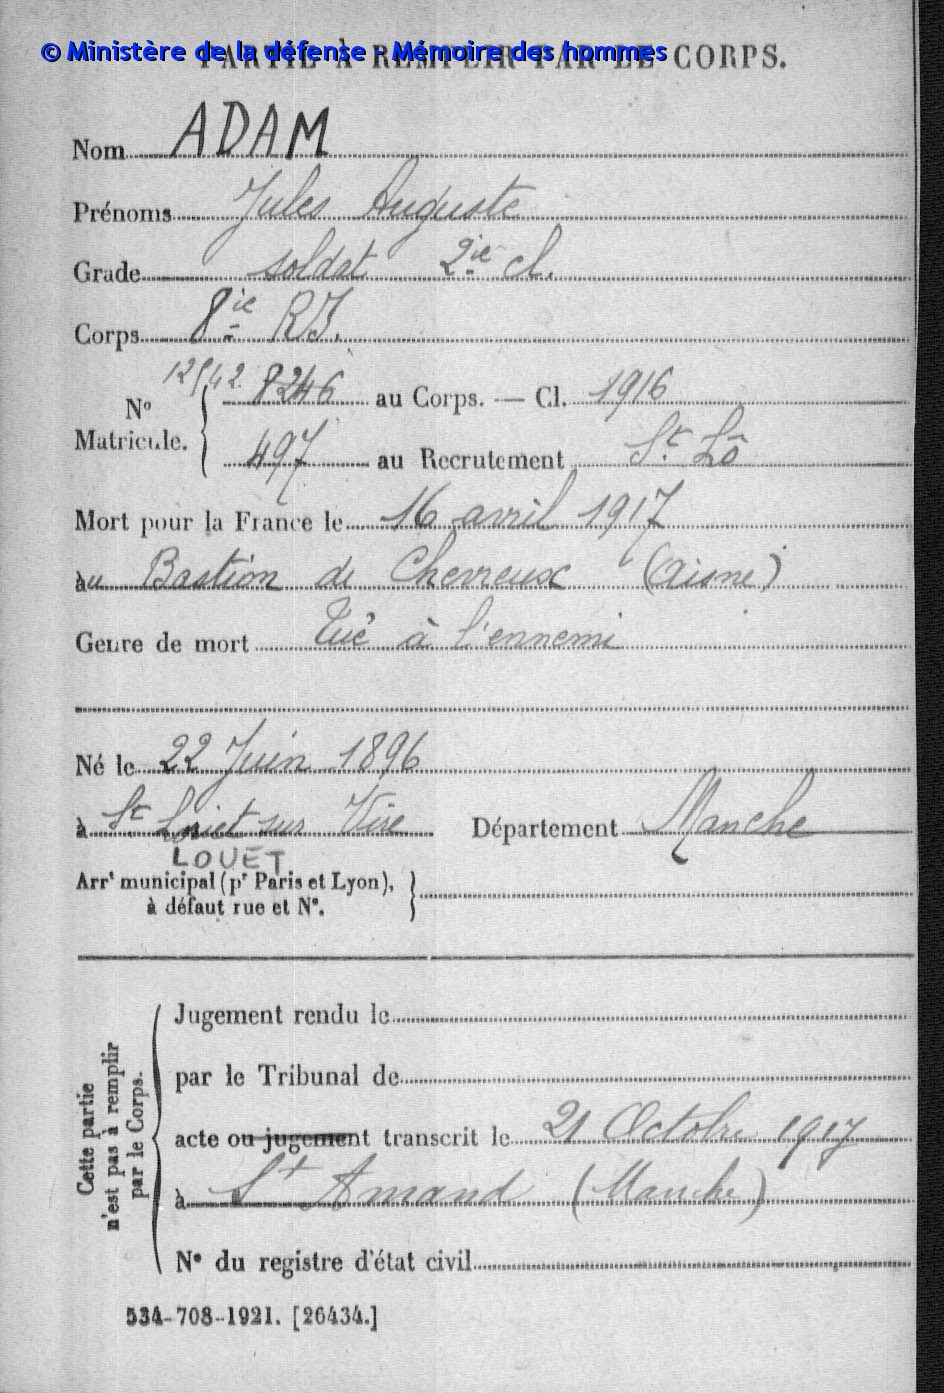 © Ministère de la défense - Mémoire des hommes
PARTIE À REMPLIR PAR LE CORPS.
Nom ADAM
Prénoms Jules Auguste
Grade soldat 2ie cl.
Corps 8ie RI.
12542
8246 au Corps. — Cl. 1916
N° Matricule.
497 au Recrutement St. Lô
Mort pour la France le 16 avril 1917
au Bastion de Chevreux (Aisne)
Genre de mort Tué à l'ennemi
Né le 22 Juin 1896
à St Louet sur Vire Département Manche
LOUET
Arrt municipal (pr Paris et Lyon),
à défaut rue et N°.
Cette partie
n'est pas à remplir
par le Corps.
Jugement rendu le
par le Tribunal de
acte ou jugement transcrit le 21 Octobre 1917
à St Amand (Manche)
N° du registre d'état civil
534-708-1921. [26434.]